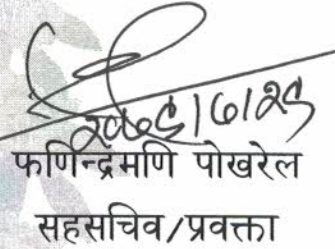 २०७९।७।२९
फणिन्द्रमणि पोखरेल
सहसचिव/प्रवक्ता